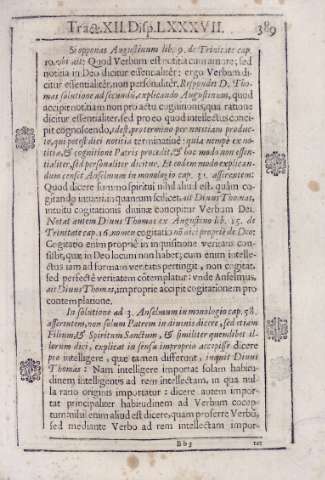 Tract. XII. Disp. LXXXVII. 389
Si opponas Augustinum lib. 9. de Trinitate cap.
10. vbi ait: Quod Verbum est notitia cum amore; sed
notitia in Deo dicitur essentialiter; ergo Verbum di-
citur essentialiter, non personaliter. Respondet D. Tho-
mas solutione ad secundũ, explicando Augustinum, quod
accipit notitiam non pro actu cognitionis, qua ratione
dicitur essentialiter, sed pro eo quod intellectus conci-
pit cognoscendo, idest, pro termino per notitiam produc-
to, qui potest dici notitia terminatiuè: quia nempe ex no-
titia, & cognitione Patris procedit, & hoc modo non essen-
tialiter, sed personaliter dicitur. Et eodem modo explican-
dum censet Anselmum in monologio cap. 31. asserentem:
Quod dicere summo spiritui nihil aliud est, quàm co-
gitando intueri: in quantum scilicet, ait Diuus Thomas,
intuitu cogitationis diuinæ concipitur Verbum Dei.
Notat autem Diuus Thomas ex Augustino lib. 15. de
Trinitate cap. 16. nomen cogitatio nõ dici propriè de Deo:
Cogitatio enim propriè in inquisitione veritatis con-
sistit, quæ in Deo locum non habet; cum enim intellec-
tus iam ad formam veritatis pertingit, non cogitat,
sed perfectè veritatem contemplatur: vnde Anselmus,
ait Diuus Thomas, impropriè accipit cogitationem pro
contemplatione.
In solutione ad 3. Anselmum in monologio cap. 58.
asserentem, non solum Patrem in diuinis dicere, sed etiam
Filium, & Spiritum Sanctum, & similiter quemlibet il-
lorum dici, explicat in sensu improprio accepisse dicere
pro intelligere, quæ tamen differunt, inquit Diuus
Thomas: Nam intelligere importat solam habitu-
dinem intelligentis ad rem intellectam, in qua nul-
la ratio originis importatur: dicere autem impor-
tat principaliter habitudinem ad Verbum concep-
tum: nihil enim aliud est dicere, quàm proferre Verbũ,
sed mediante Verbo ad rem intellectam impor-
Bb3